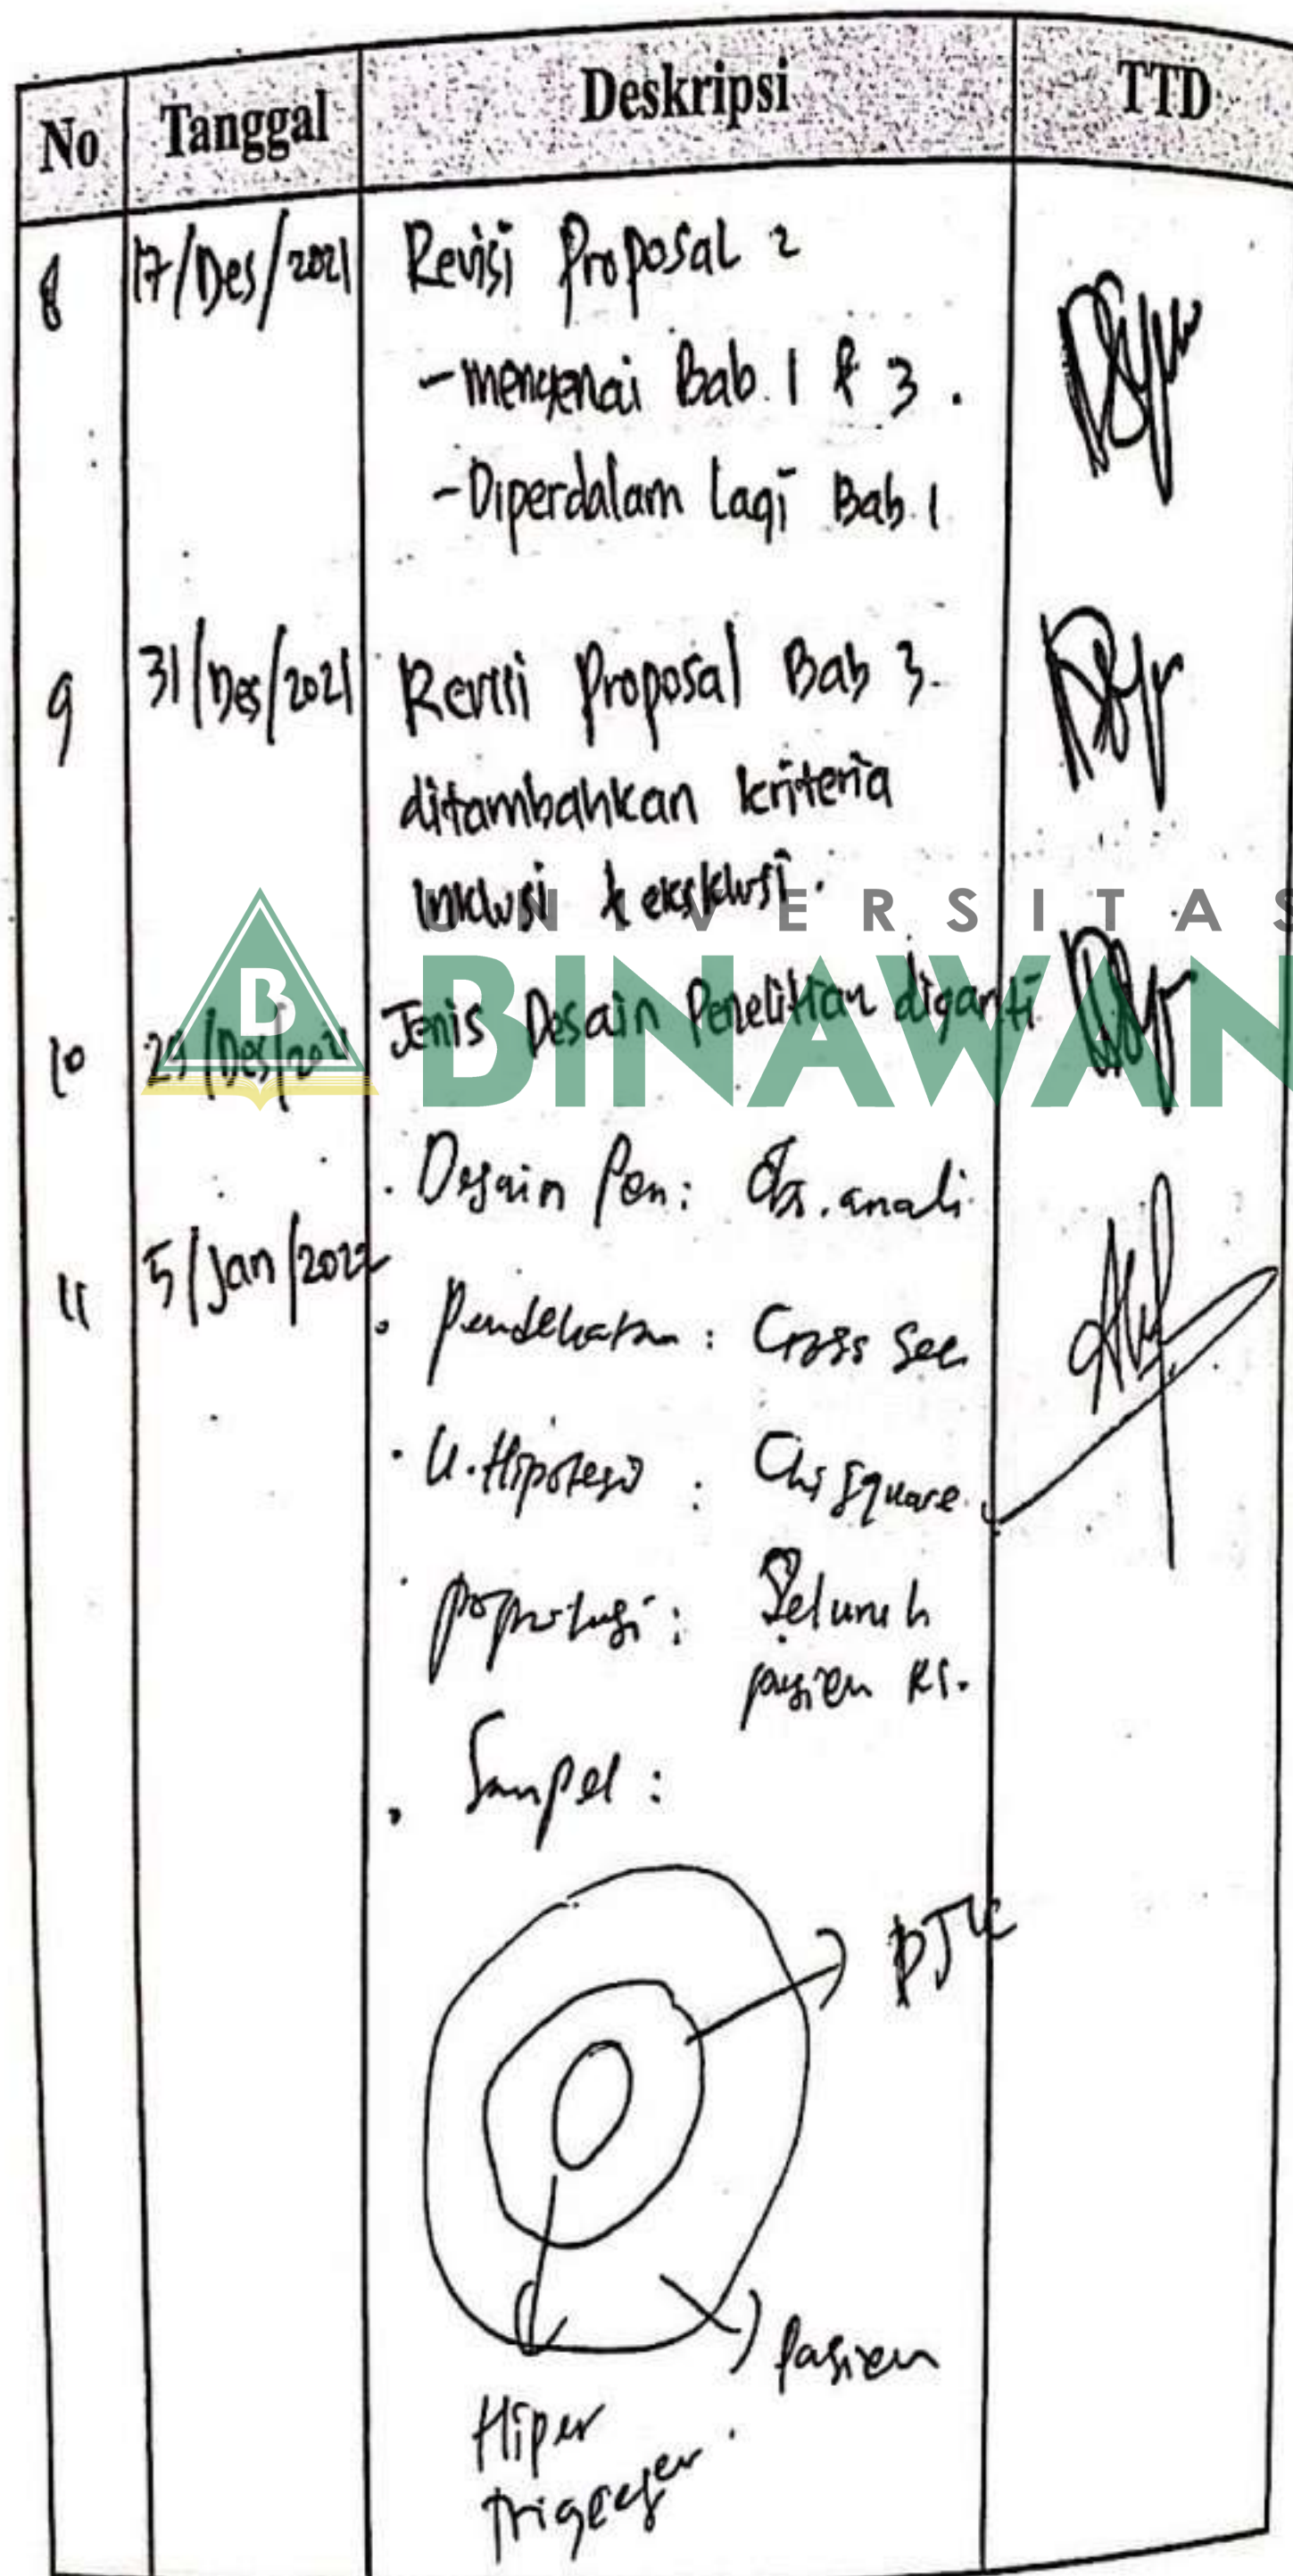 No Tanggal Deskripsi TTD
8 17/Des/2021 Revisi Proposal 2
- mengenai Bab. 1 & 3.
- Diperdalam lagi Bab. 1
9 31/Des/2021 Revisi Proposal Bab 3.
ditambahkan kriteria
inklusi & eksklusi.
UNIVERSITAS
B BINAWAN
10 29/Des/2021 Jenis Desain Penelitian diganti
11 5/Jan/2022 . Desain Pen: Obs. anali
. Pendekatan : Cross Sec
. U. Hipotesis : Chi Square
. populasi : Seluruh
pasien RS.
. Sampel :
PJK
pasien
Hiper